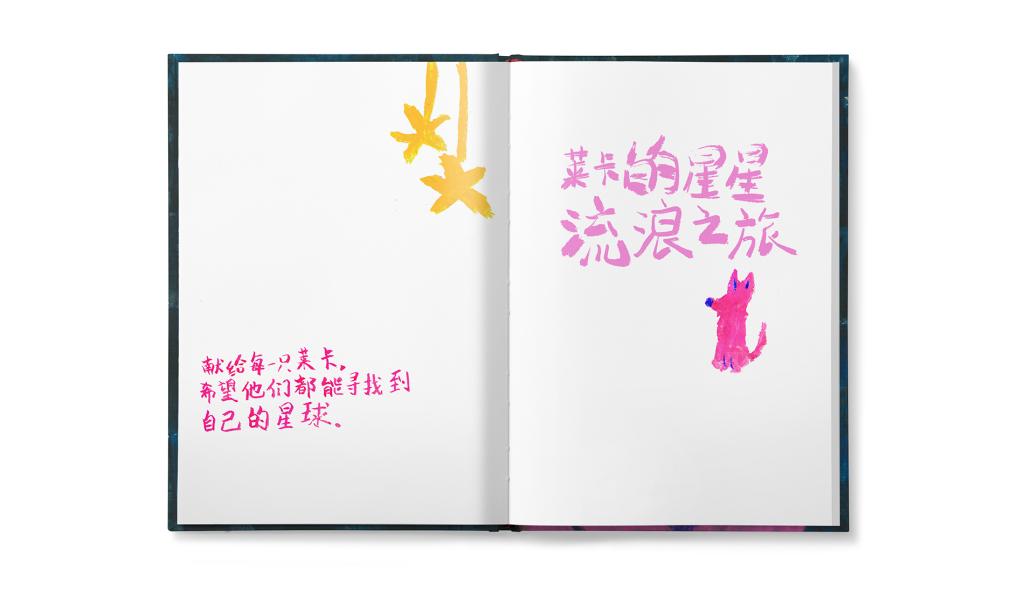 献给每一只莱卡，
希望他们都能寻找到
自己的星球。
莱卡的星星
流浪之旅